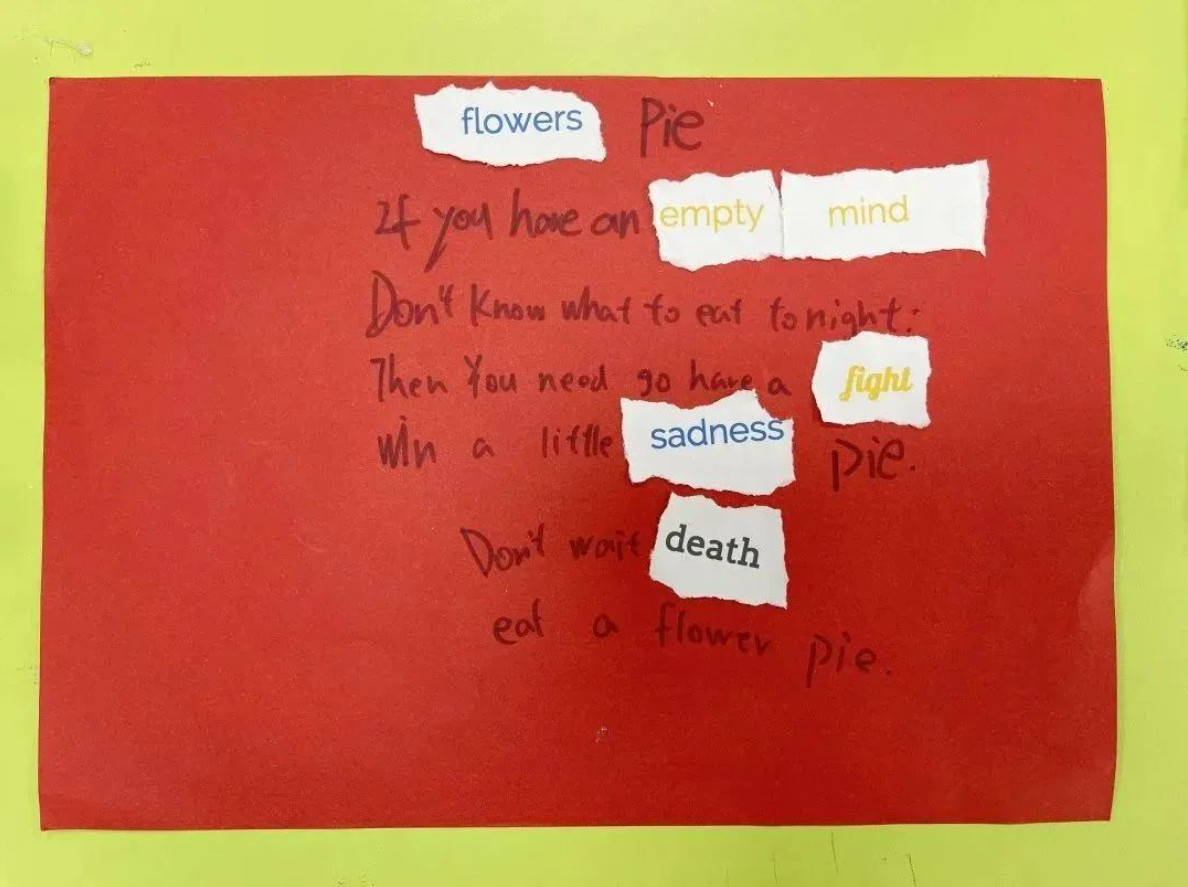 flowers Pie
If you have an empty mind
Don't know what to eat tonight:
Then You need go have a fight
win a little sadness pie.
Don't wait death
eat a flower pie.